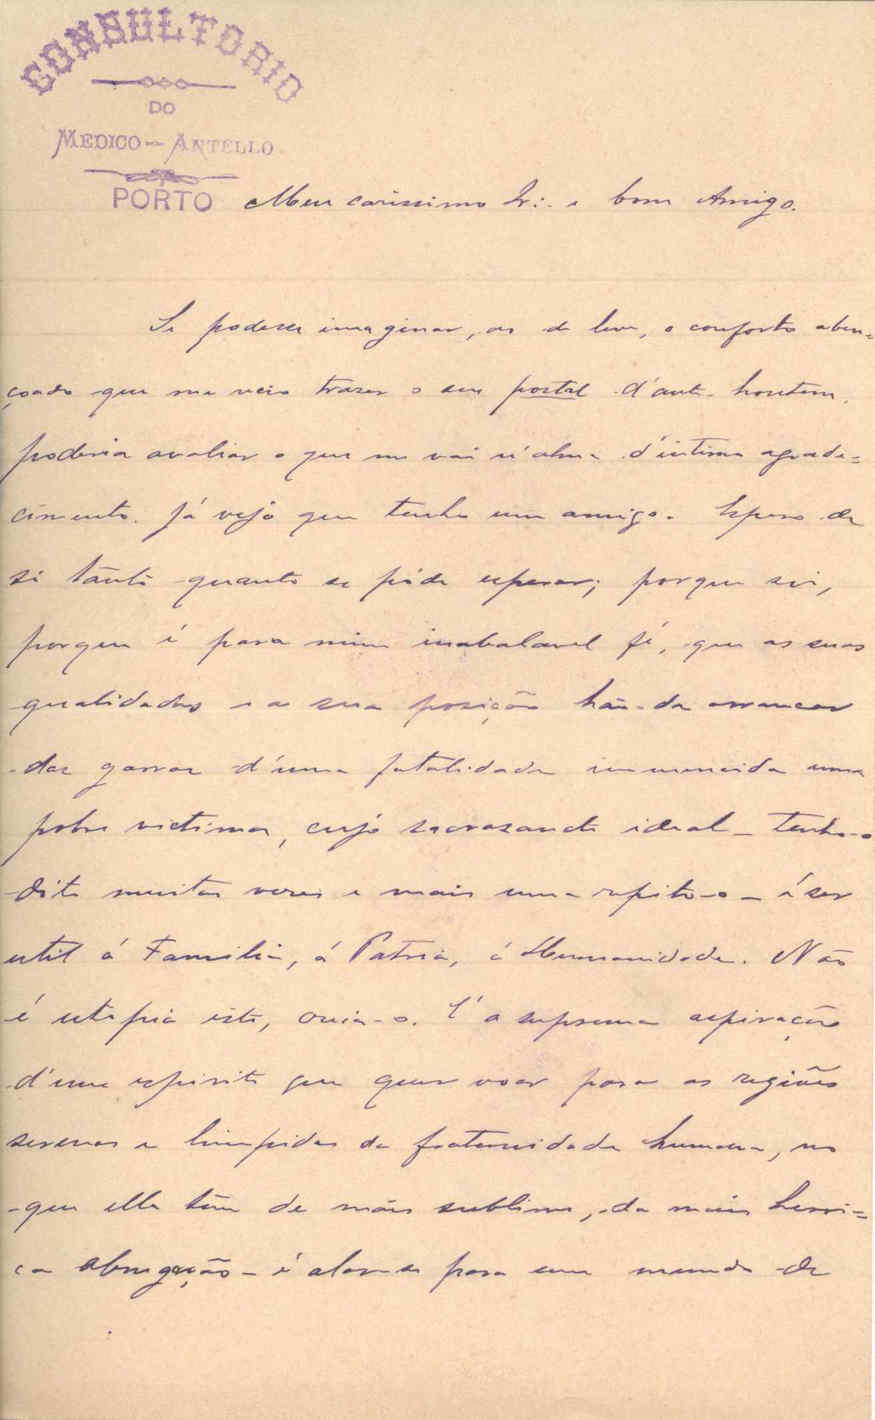 CONSULTORIO
DO
MEDICO-ANTELLO
PORTO
Meu carissimo Ir∴ e bom Amigo.
Se podesse imaginar, ao de leve, o conforto aben=
çoado que me veio trazer o seu postal d'ante-hontem,
poderia avaliar o que me vai n'alma d'intimo agrade=
cimento. Já vejo que tenho um amigo. Espero de
si tanto quanto se póde esperar; porque sei,
porque é para mim inabalavel fé, que as suas
qualidades e a sua posição hão-de arrancar
das garras d'uma fatalidade immerecida uma
pobre victima, cujo sacrosancto ideal – tenho-o
dito muitas vezes e mais uma repito-o – é ser
util á Familia, á Patria, á Humanidade. Não
é utopia isto, creia-o. É a suprema aspiração
d'um espirito que quer voar para as regiões
serenas e limpidas da fraternidade humana, no
que ella tem de mais sublime, de mais heroi=
ca abnegação – é alar-se para um mundo de